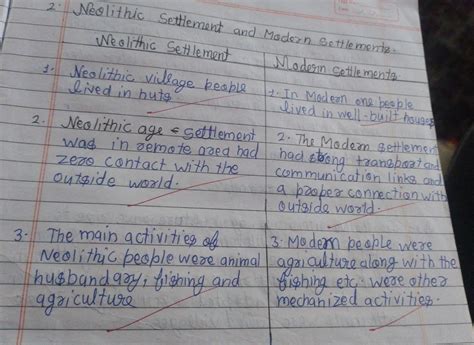 2. Neolithic Settlement and Modern Settlements.
Neolithic Settlement
1. Neolithic village people
lived in huts
2. Neolithic age settlement
was in remote area had
zero contact with the
outside world.
3. The main activities of
Neolithic people were animal
husbandary, fishing and
agriculture
Modern settlements
1. In Modern one people
lived in well-built houses
2. The Modern settlement
had strong transport and
communication links and
a proper connection with
outside world.
3. Modern people were
agriculture along with the
fishing etc. were other
mechanized activities.